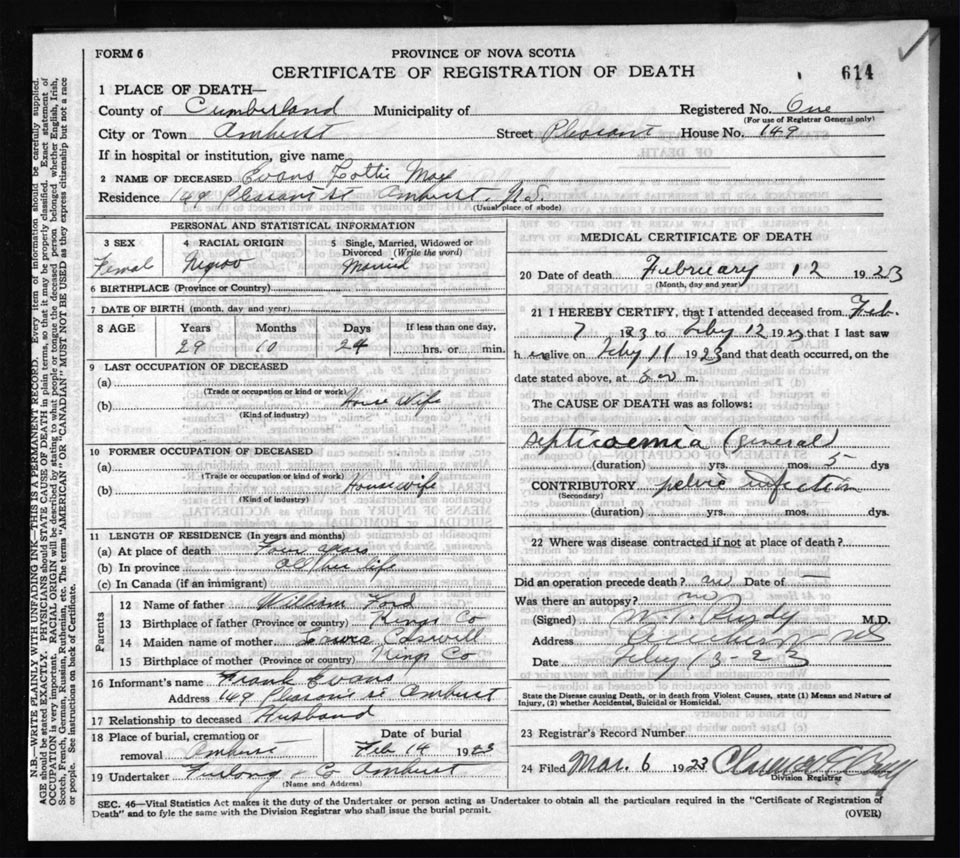 FORM 6
PROVINCE OF NOVA SCOTIA
CERTIFICATE OF REGISTRATION OF DEATH
614
1 PLACE OF DEATH—
County of Cumberland Municipality of Registered No. One
(For use of Registrar General only)
City or Town Amherst Street Pleasant House No. 149
If in hospital or institution, give name
2 NAME OF DECEASED Evans Lottie May
Residence 149 Pleasant St Amherst, N.S.
(Usual place of abode)
PERSONAL AND STATISTICAL INFORMATION
3 SEX 4 RACIAL ORIGIN 5 Single, Married, Widowed or Divorced (Write the word)
Femal Negroo Married
6 BIRTHPLACE (Province or Country)
7 DATE OF BIRTH (month, day and year)
8 AGE Years Months Days If less than one day,
29 10 24 hrs. or min.
9 LAST OCCUPATION OF DECEASED
(a)
(Trade or occupation or kind or work)
(b) House Wife
(Kind of industry)
10 FORMER OCCUPATION OF DECEASED
(a)
(Trade or occupation or kind of work)
(b) Housewife
(Kind of industry)
11 LENGTH OF RESIDENCE (In years and months)
(a) At place of death Four years
(b) In province all her life
(c) In Canada (if an immigrant)
Parents
12 Name of father William Ford
13 Birthplace of father (Province or country) Kings Co
14 Maiden name of mother Laura
15 Birthplace of mother (Province or country) Kings Co
16 Informant's name Frank Evans
Address 149 Pleasant St Amherst
17 Relationship to deceased Husband
18 Place of burial, cremation or removal Date of burial
Amherst Feb 14 1923
19 Undertaker Furlong & Co Amherst
(Name and Address)
MEDICAL CERTIFICATE OF DEATH
20 Date of death February 12 1923
(Month, day and year)
21 I HEREBY CERTIFY, that I attended deceased from Feb.
7 1923 to Feby 12 1923 that I last saw
h er alive on Feby 11 1923 and that death occurred, on the
date stated above, at m.
The CAUSE OF DEATH was as follows:
Septicaemia (general)
(duration) yrs. mos. 5 dys
CONTRIBUTORY pelvic infection
(Secondary)
(duration) yrs. mos. dys.
22 Where was disease contracted if not at place of death?
Did an operation precede death? no Date of —
Was there an autopsy? no
(Signed) M.D.
Address Amherst NS
Date Feby 13-23
State the Disease causing Death, or in death from Violent Causes, state (1) Means and Nature of
Injury, (2) whether Accidental, Suicidal or Homicidal.
23 Registrar's Record Number
24 Filed Mar. 6 1923
Division Registrar
SEC. 46—Vital Statistics Act makes it the duty of the Undertaker or person acting as Undertaker to obtain all the particulars required in the "Certificate of Registration of
Death" and to fyle the same with the Division Registrar who shall issue the burial permit. (OVER)
N.B.—WRITE PLAINLY WITH UNFADING INK—THIS IS A PERMANENT RECORD. Every item of information should be carefully supplied.
AGE should be stated EXACTLY. PHYSICIANS should STATE CAUSE OF DEATH in plain terms, so that it may be properly classified. Exact statement of
OCCUPATION is very important. RACIAL ORIGIN will be described by stating to what people or tongue the deceased person belonged whether English, Irish,
Scotch, French, German, Russian, Ruthenian, etc. The terms "AMERICAN" OR "CANADIAN" MUST NOT BE USED as they express citizenship but not a race
or people. See instructions on back of Certificate.